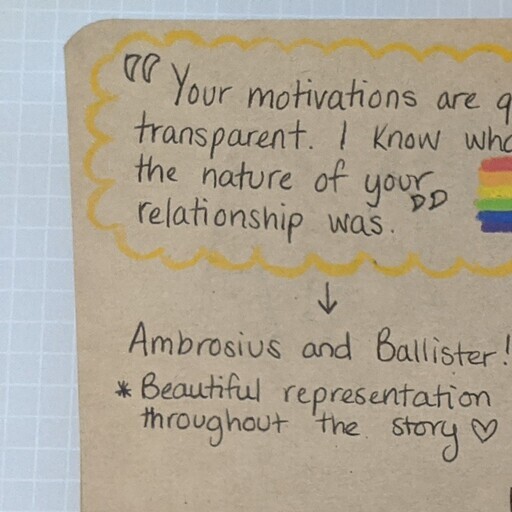 "Your motivations are q
transparent. I know wha
the nature of your
relationship was."
↓
Ambrosius and Ballister!
* Beautiful representation
throughout the story ♡